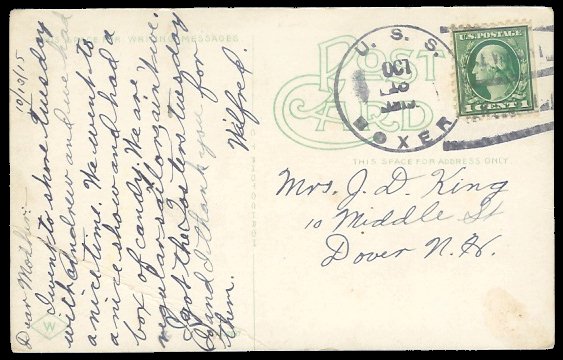 PLACE FOR WRITING MESSAGES
10/10/15
Dear Mother:
I went to shore tuesday
with Andrew and we had
a nice time. We went to
a nice show and had a
box of candy. We are
regular sailors ain't we.
I got the Posters tuesday
and I thank you for
them.
Wilfred.
POST
CARD
THIS SPACE FOR ADDRESS ONLY
U. S. S.
OCT
BOXER
U.S. POSTAGE
1 CENT 1
Mrs. J. D. King
10 Middle St
Dover N. H.
W